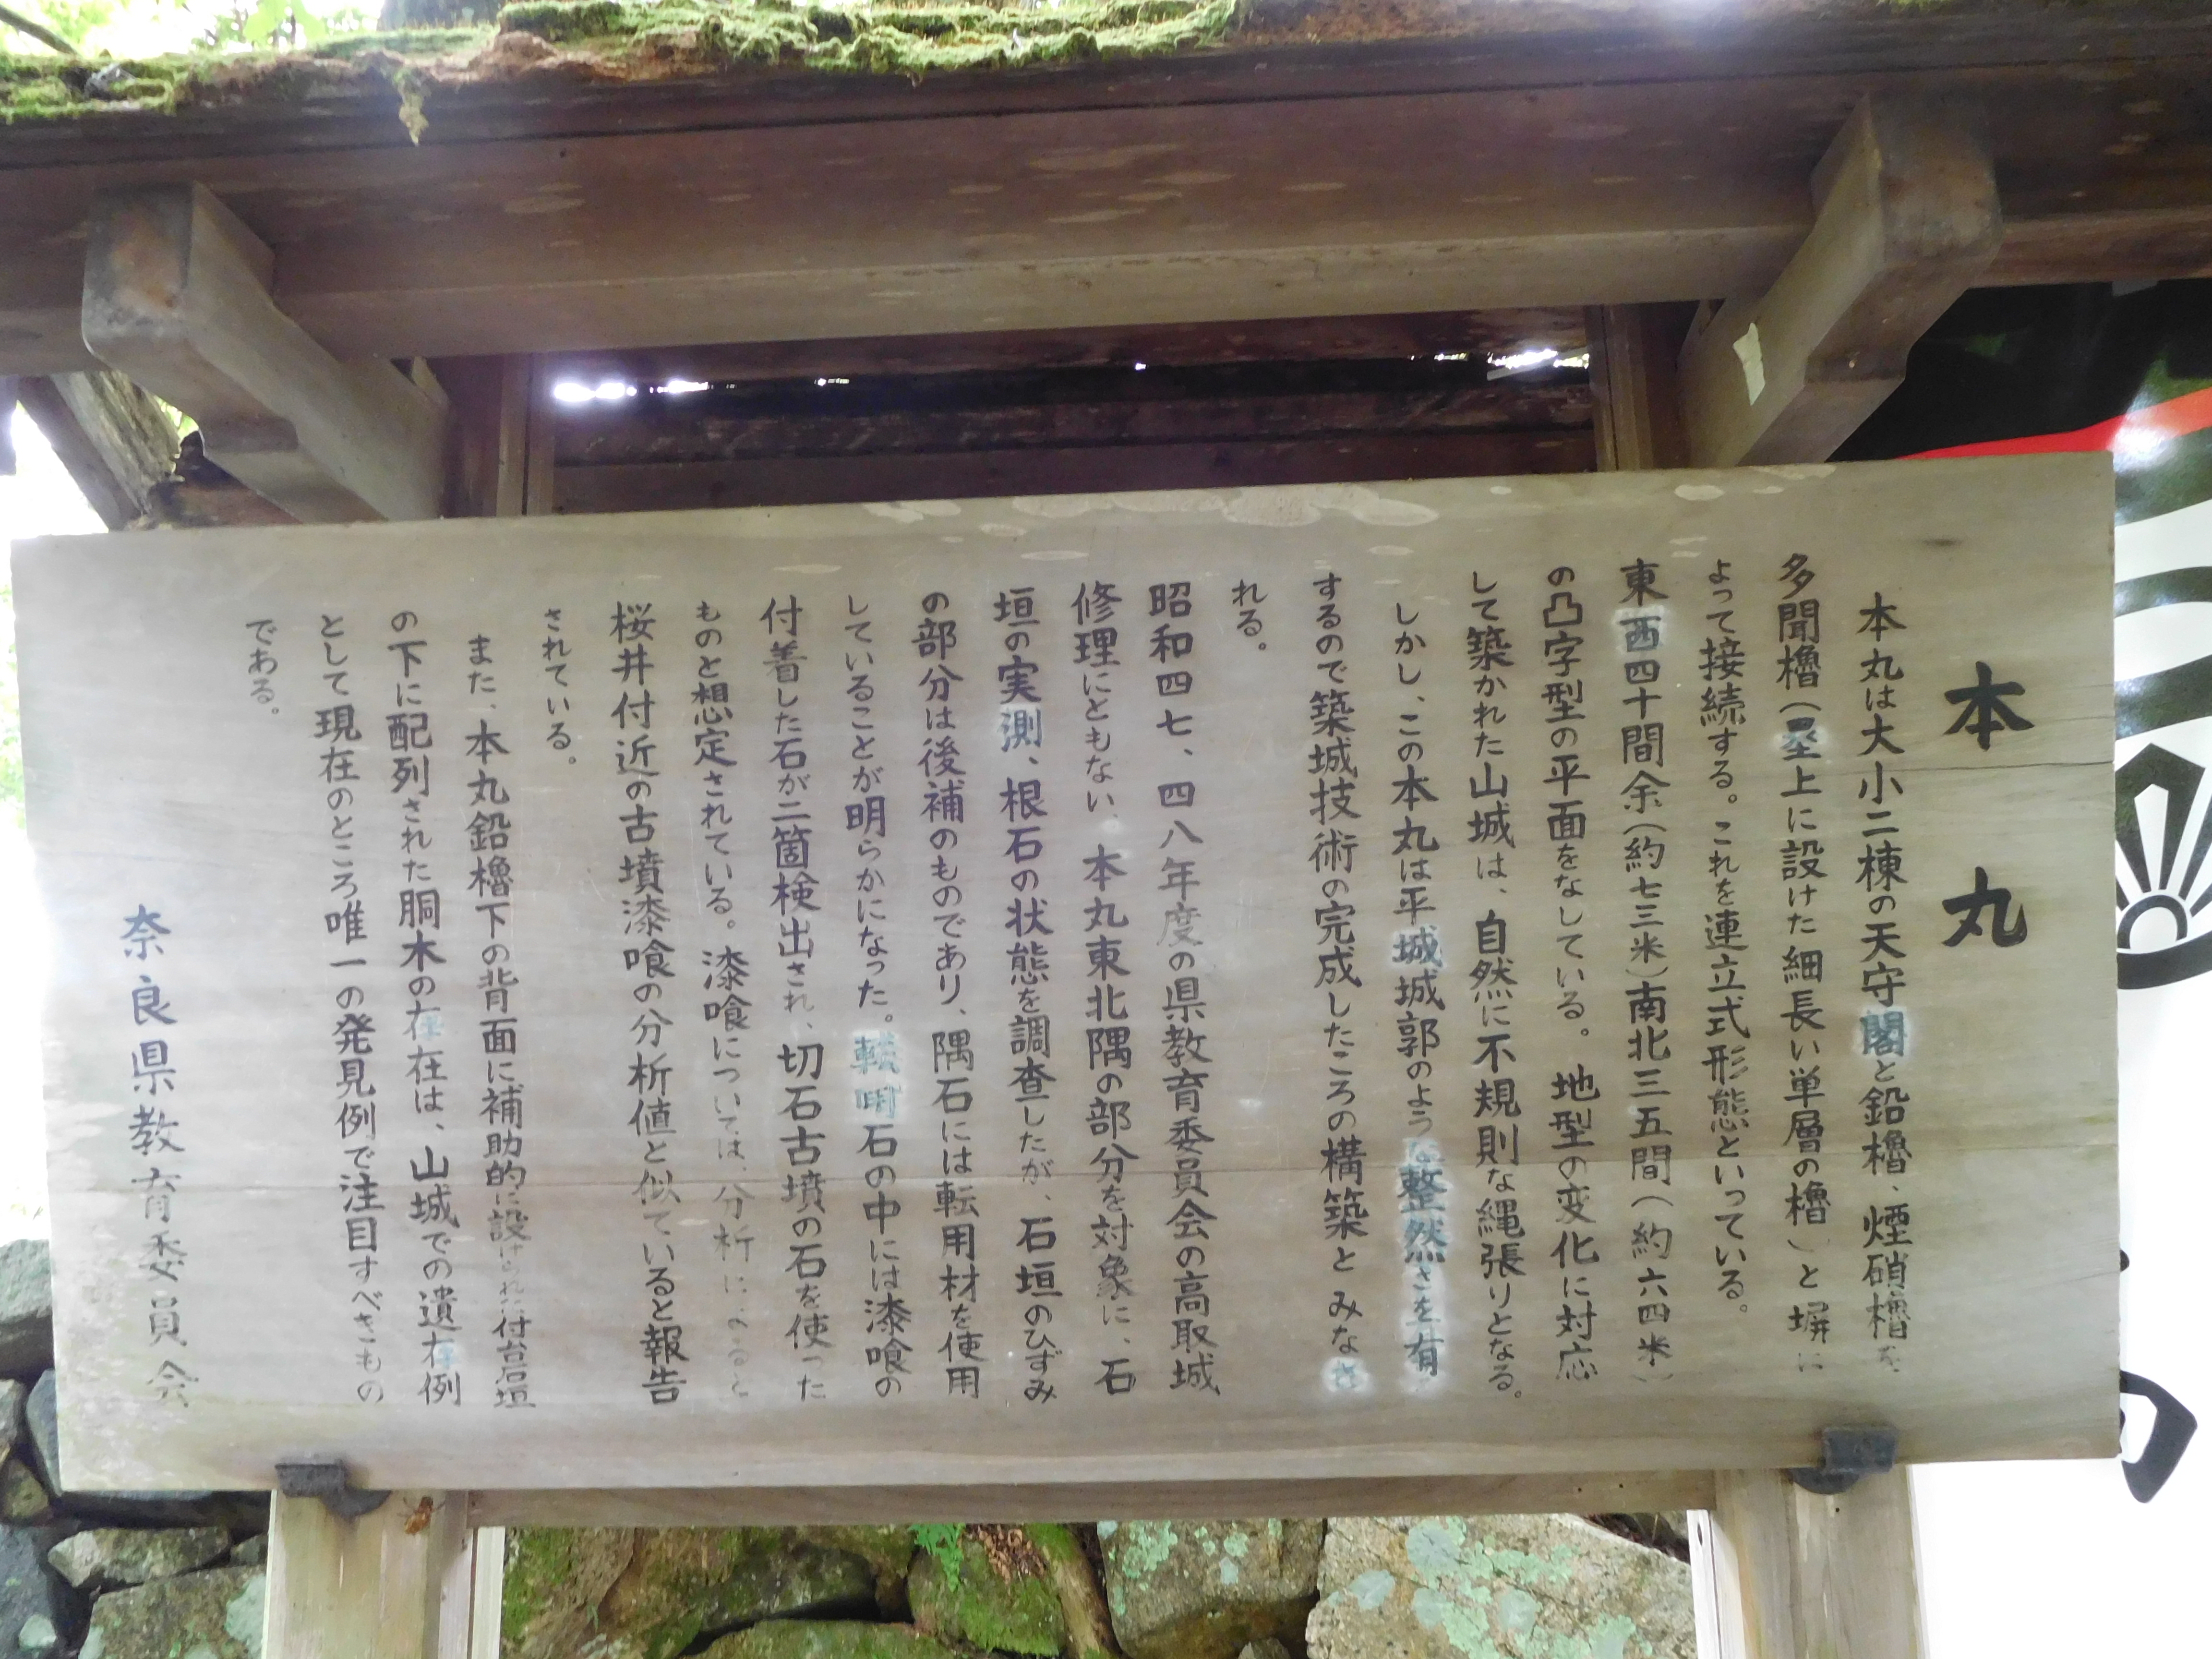 本丸
本丸は大小二棟の天守閣と鉛櫓、煙硝櫓を
多聞櫓（塁上に設けた細長い単層の櫓）と塀に
よって接続する。これを連立式形態といっている。
東西四十間余（約七三米）南北三五間（約六四米）
の凸字型の平面をなしている。地型の変化に対応
して築かれた山城は、自然に不規則な縄張りとなる。
しかし、この本丸は平城城郭のような整然さを有
するので築城技術の完成したころの構築とみなさ
れる。
昭和四七、四八年度の県教育委員会の高取城
修理にともない、本丸東北隅の部分を対象に、石
垣の実測、根石の状態を調査したが、石垣のひずみ
の部分は後補のものであり、隅石には転用材を使用
していることが明らかになった。転用石の中には漆喰の
付着した石が二箇検出され、切石古墳の石を使った
ものと想定されている。漆喰については、分析によると
桜井付近の古墳漆喰の分析値と似ていると報告
されている。
また、本丸鉛櫓下の背面に補助的に設けられた付台石垣
の下に配列された胴木の存在は、山城での遺存例
として現在のところ唯一の発見例で注目すべきもの
である。
奈良県教育委員会